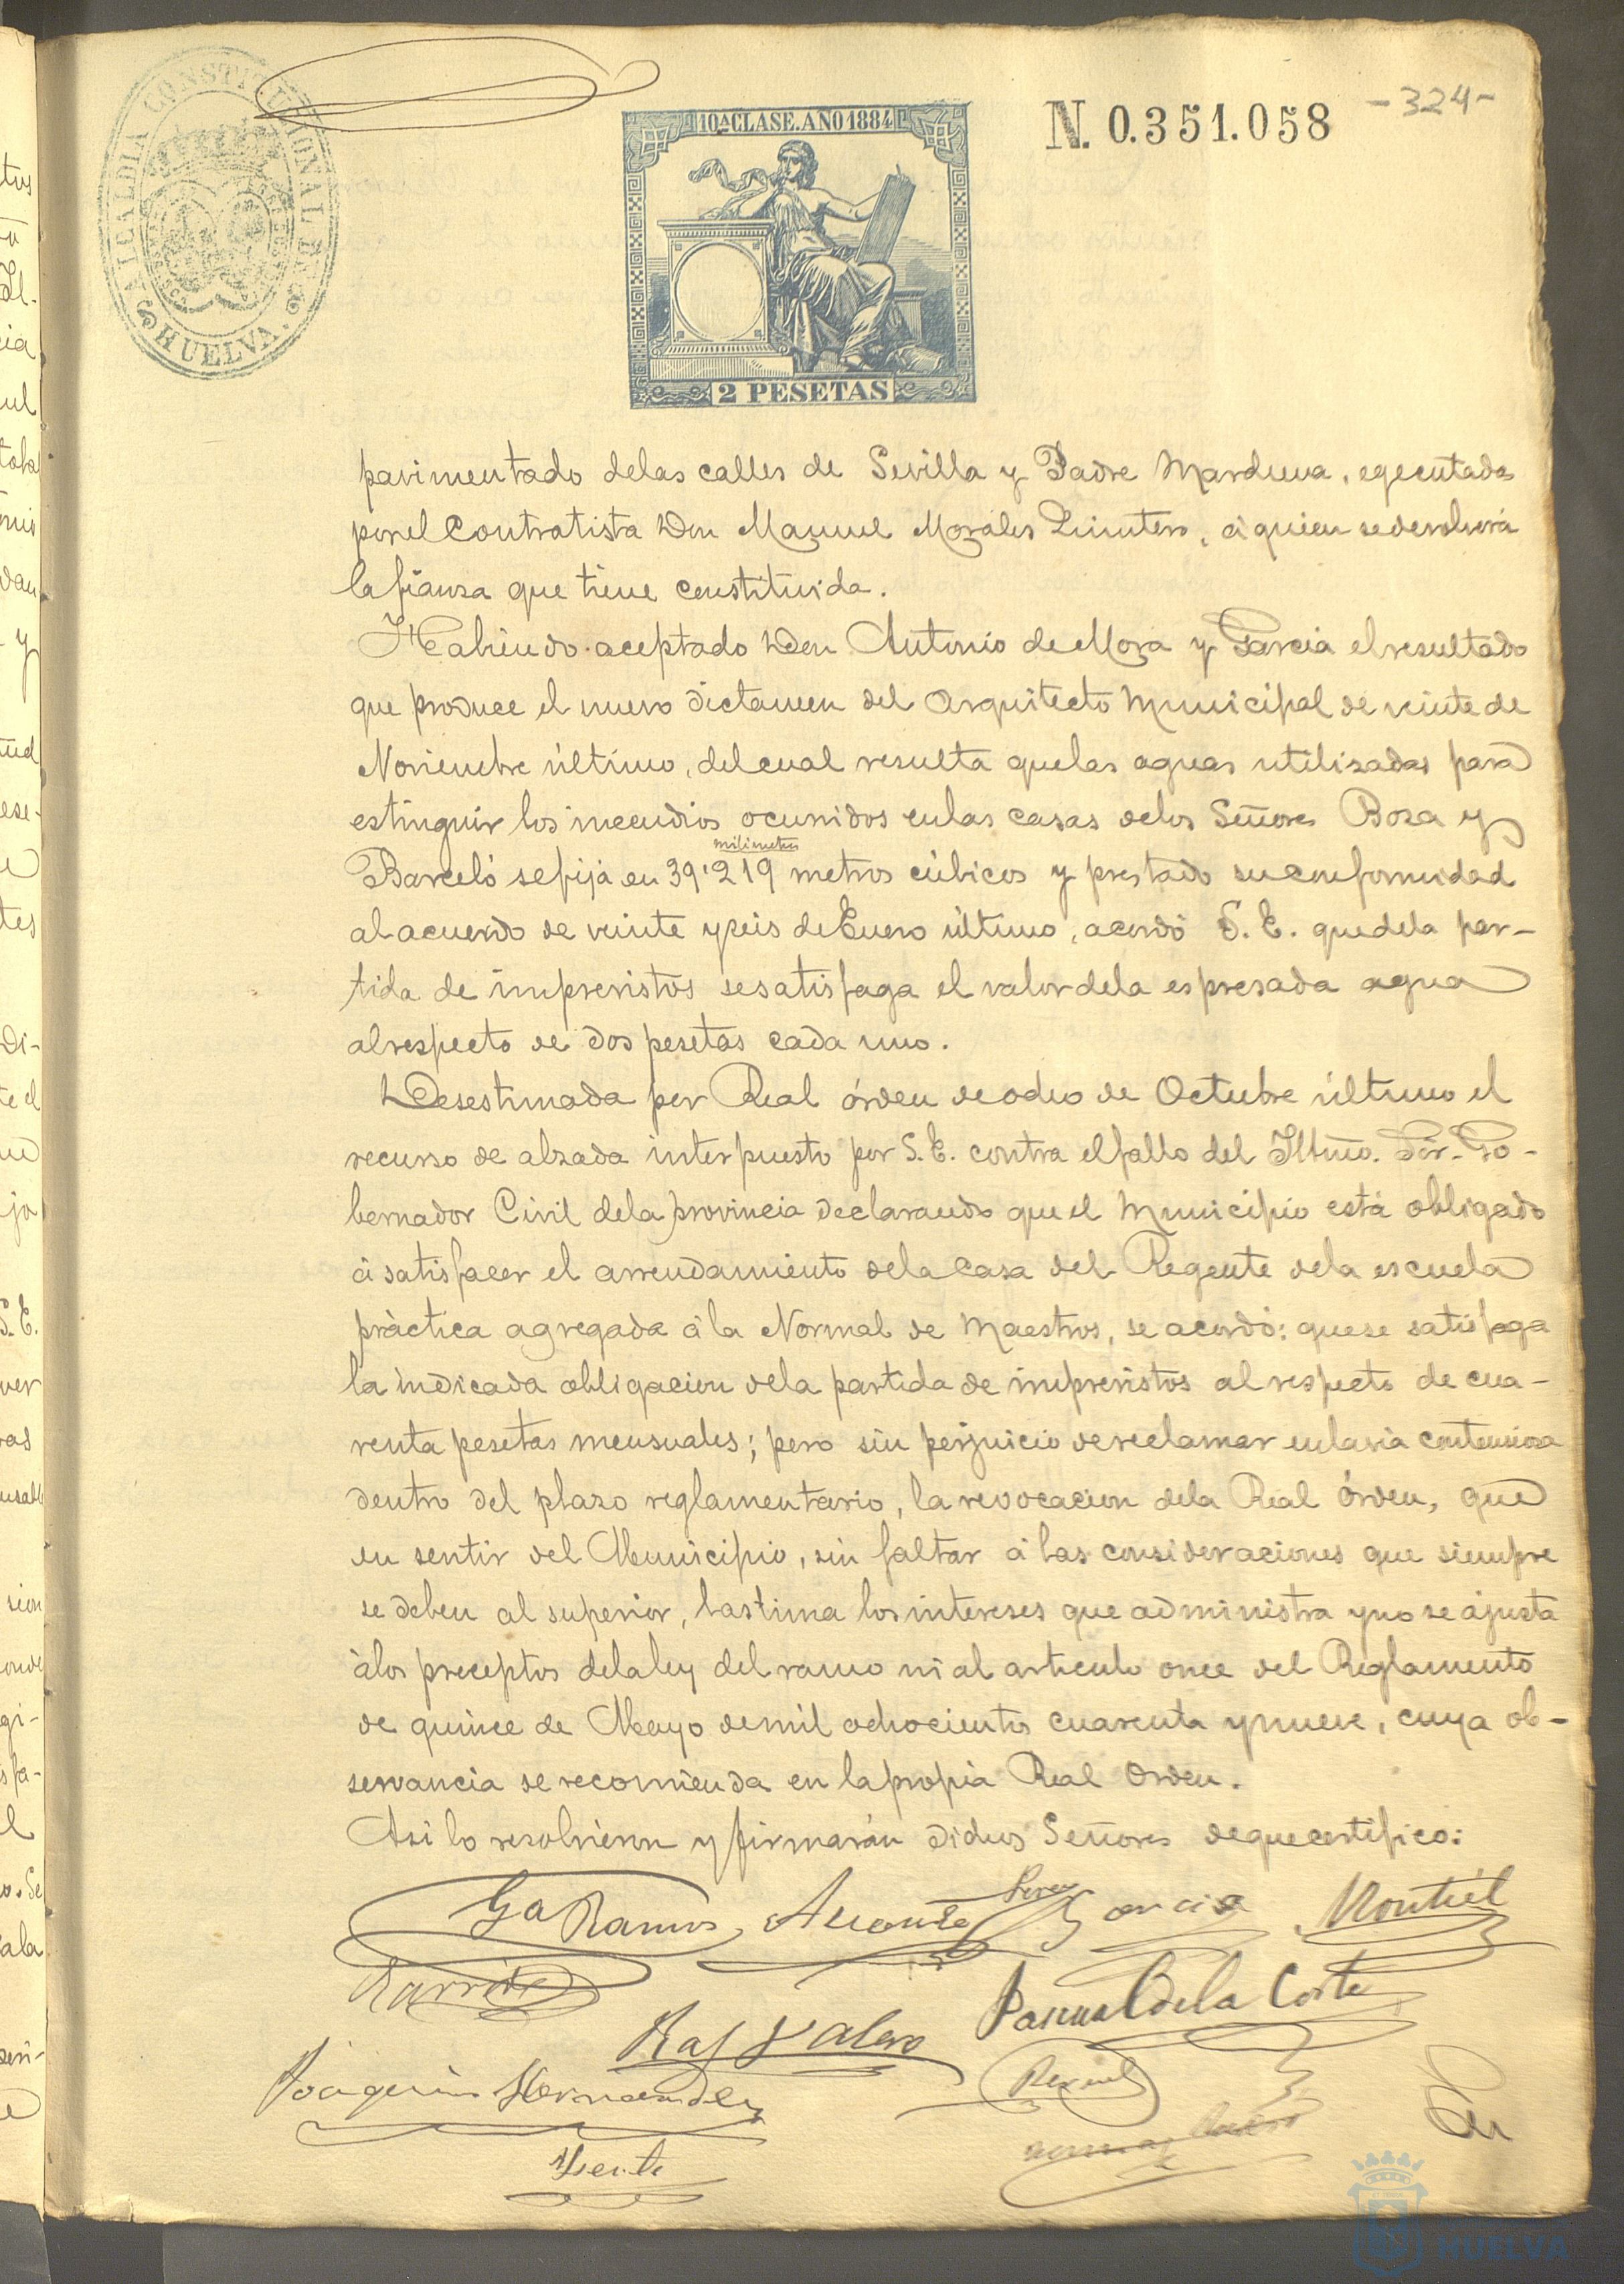 ALCALDIA CONSTITUCIONAL DE HUELVA.
10ª CLASE. AÑO 1884
2 PESETAS
N. 0.351.058
-324-
pavimentado delas calles de Sevilla y Padre Marchena, egecutadas
porel Contratista Don Manuel Morales Quintero, á quien sedevolverá
la fianza que tiene constituida.
Habiendo aceptado Don Antonio de Mora y Garcia elresultado
que produce el nuevo dictamen del Arquitecto Municipal de veinte de
Noviembre último, delcual resulta quelas aguas utilizadas para
estinguir los incendios ocurridos enlas casas delos Señores Boza y
milimetros
Barceló sefija en 39'219 metros cúbicos y prestado suconformidad
alacuerdo de veinte yseis deEnero último, acordó S. E. quedela par-
tida de imprevistos sesatisfaga el valor dela espresada agua
alrespecto de dos pesetas cada uno.
Desestimada por Real órden deocho de Octubre último el
recurso de alzada interpuesto por S. E. contra elfallo del Iltmo. Sor. Go-
bernador Civil dela provincia declarando queel Municipio está obligado
á satisfacer el arrendamiento dela casa del Regente dela escuela
práctica agregada á la Normal de Maestros, se acordó: quese satisfaga
la indicada obligacion dela partida de imprevistos al respecto de cua-
renta pesetas mensuales; pero sin perjuicio dereclamar enlavia contenciosa
dentro del plazo reglamentario, la revocacion dela Real Órden, que
en sentir del Municipio, sin faltar á las consideraciones que siempre
se deben al superior, lastima losintereses que administra yno se ajusta
álos preceptos delaley del ramo ni al articulo once del Reglamento
de quince de Mayo demil ochocientos cuarenta ynueve, cuya ob-
servancia se recomienda en lapropia Real Orden.
Asi lo resolvieron y firmarán dichos Señores dequecertifico:
Ga Ramos
Garcia
Montiel
Pascual de la Corte
Raf Valero
Joaquin Hernandez
HUELVA